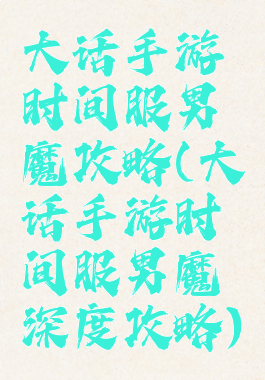 大话手游
时间服男
魔攻略(大
话手游时
间服男魔
深度攻略)